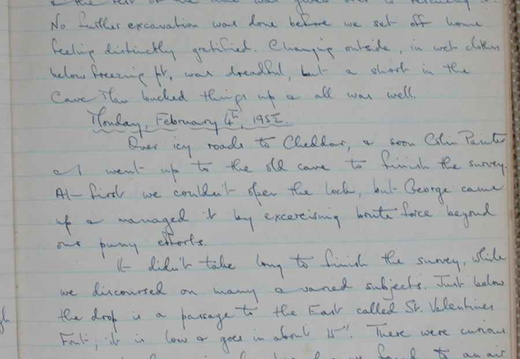 No further excavation was done before we set off home
feeling distinctly gratified. Changing outside, in wet clothes
below freezing pt, was dreadful, but a short in the
Cave Man bucked things up & all was well.
Monday, February 4th, 195
Over icy roads to Cheddar, & soon Colin
& I went up to the old cave to finish the survey.
At first we couldn't open the lock, but George came
up & managed it by excercising brute force beyond
our puny efforts.
It didn't take long to finish the survey, while
we discoursed on many & varied subjects. Just below
the drop is a passage to the East called St. Valentines
it is low & goes in about There were curious